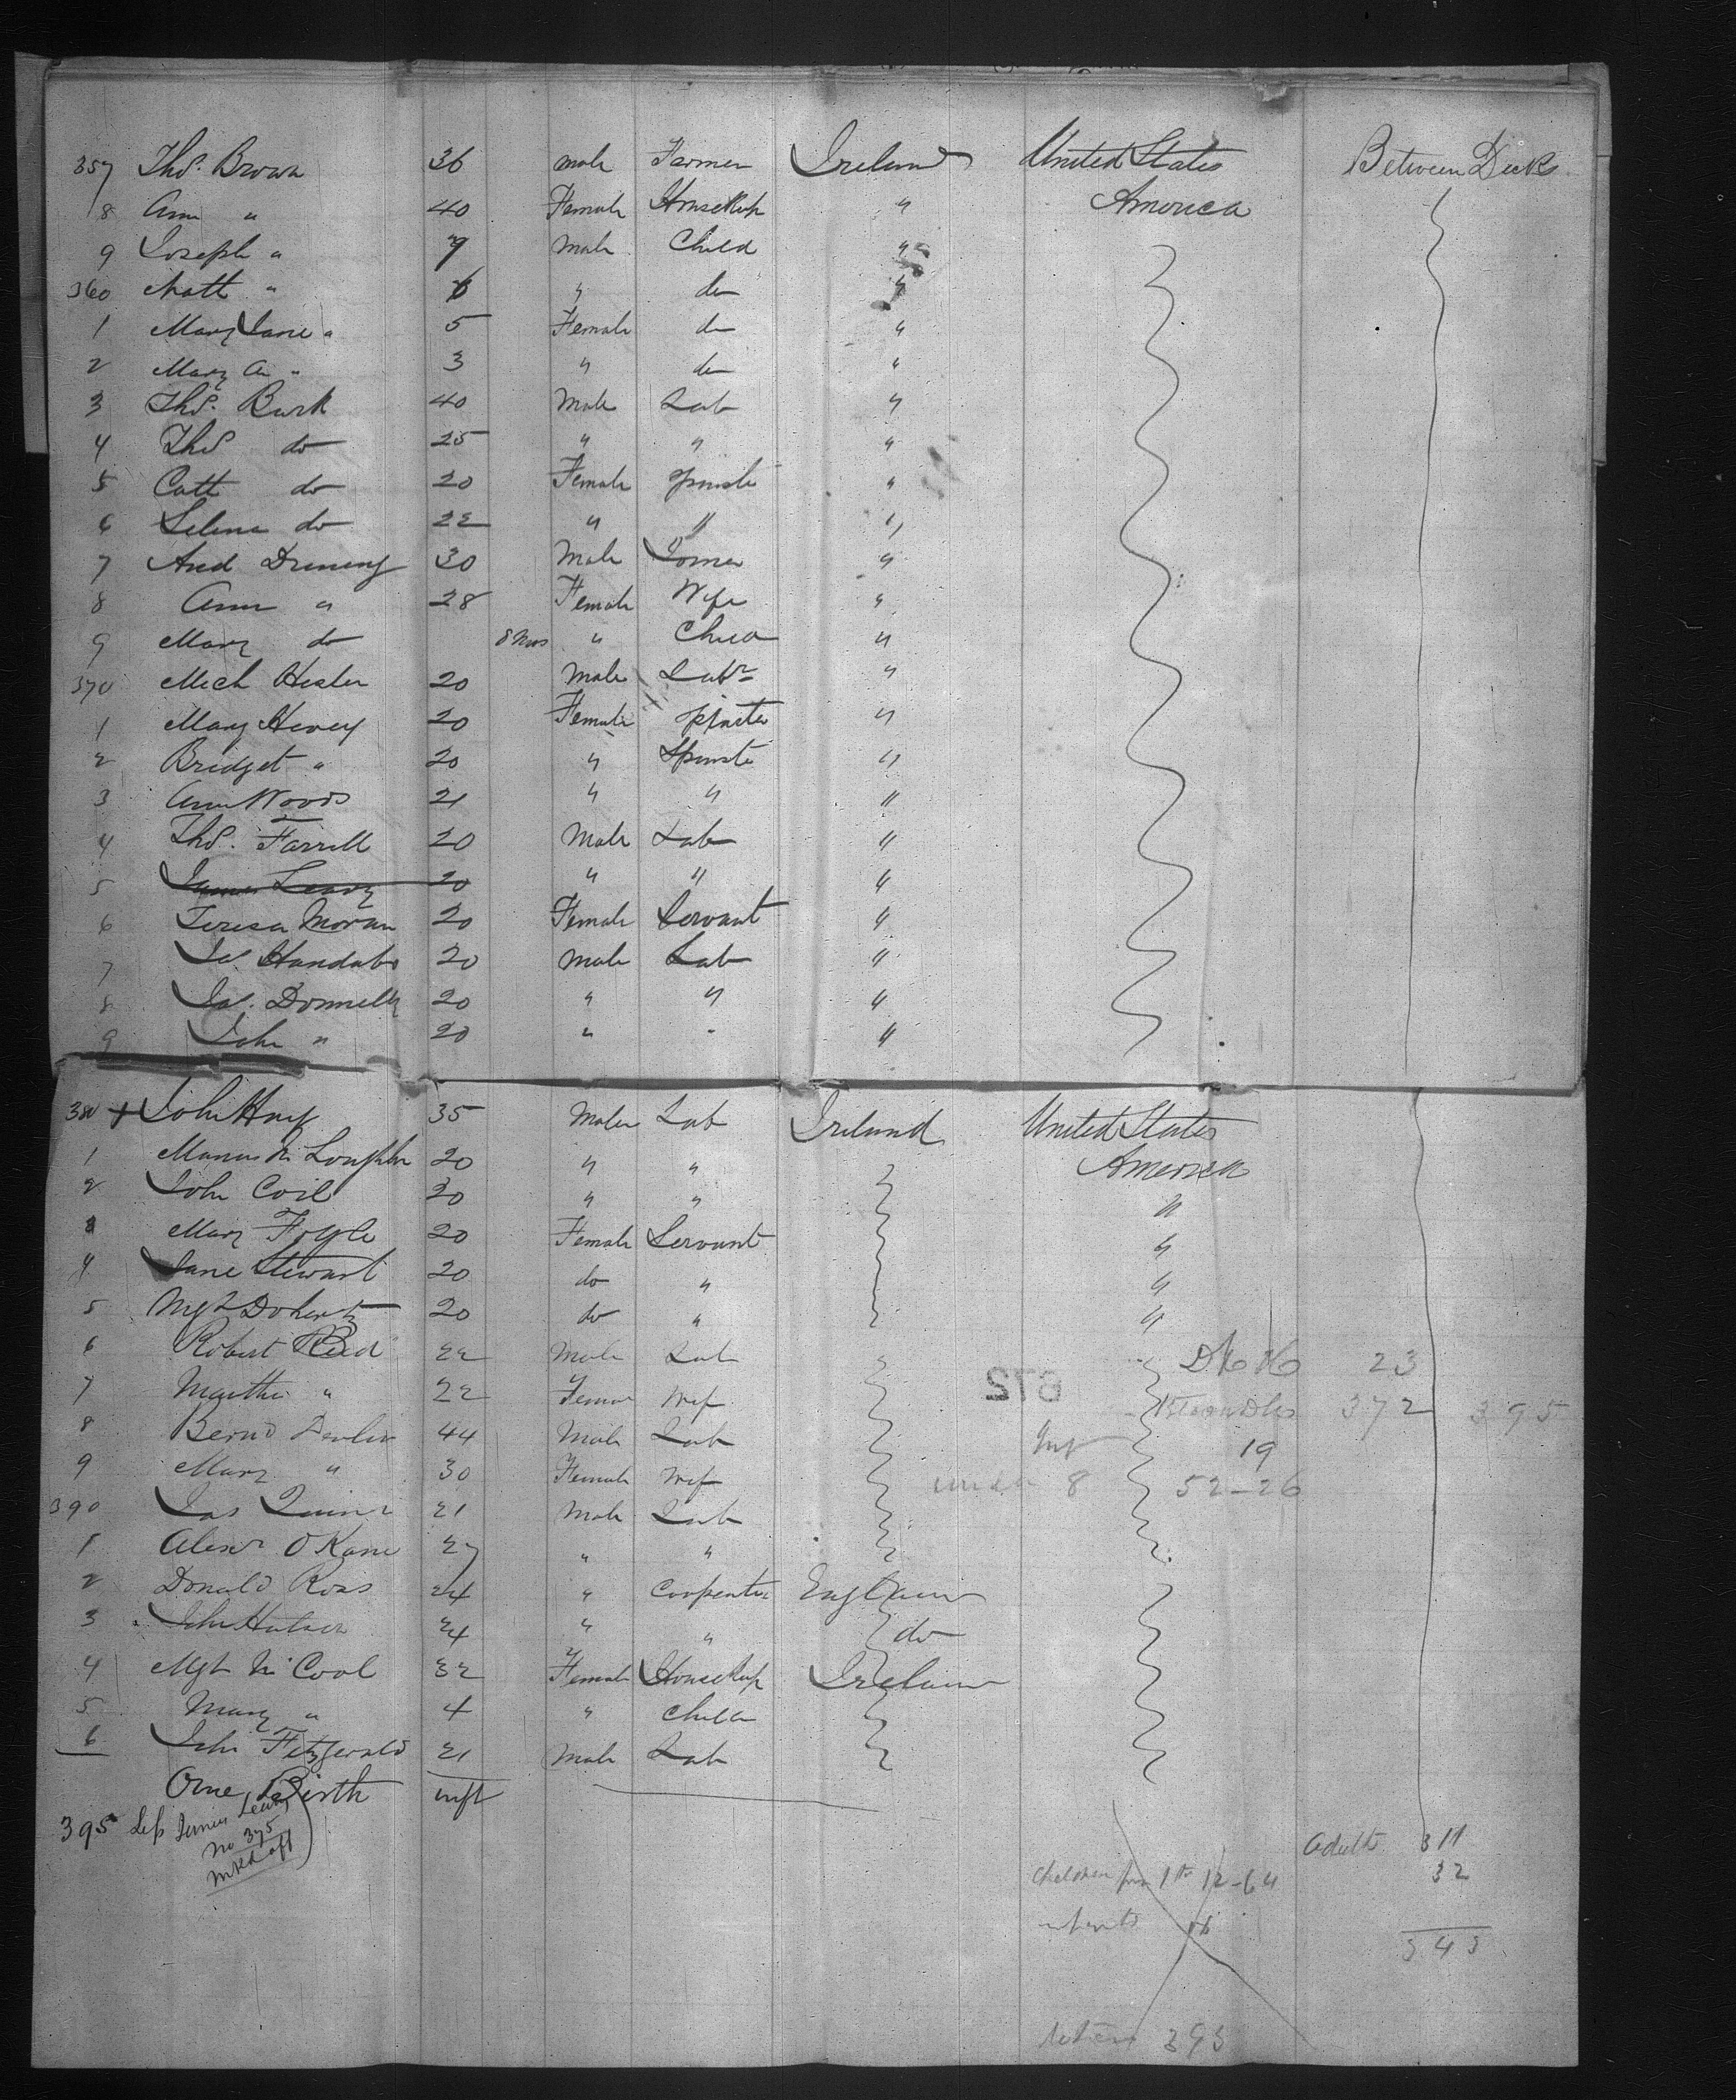 357 Thos. Brown 36 male Farmer Ireland United States Between Decks
8 Ann " 40 Female Housekep " America
9 Joseph " 9 Male Child "
360 Matt " 6 " do "
1 Mary Jane " 5 Female do "
2 Mary A " 3 " do "
3 Thos. Burk 40 Male Lab "
4 Thos do 25 " " "
5 Cath do 20 Female Spinste "
6 Selina do 22 " " "
7 And 30 Male "
8 Ann " 28 Female Wife "
9 Mary do 8 Mos " Child "
370 Mich Hesler 20 Male Labr "
1 Mary Hevey 20 Female "
2 Bridget " 20 " Spinste "
3 Ann Woods 21 " " "
4 Thos. Farrell 20 Male Lab "
5 James Leavy 20 " " "
6 Teresa Moran 20 Female Servant "
7 20 Male Lab "
8 Jas. Donnelly 20 " " "
9 John " 20 " " "
380 + John 35 Male Lab Ireland United States
1 Manus Mc Loughlin 20 " " America
2 John Coil 20 " " "
3 Mary 20 Female Servant "
4 Jane Stewart 20 do " "
5 Mgt Doherty 20 do " "
6 Robert Reed 22 Male Lab 23
7 Martha " 22 Female Wif 372 395
8 Bernd Devlin 44 Male Lab Inf 19
9 Mary " 30 Female Wif under 8 52-26
390 Jas Quinn 21 Male Lab
1 Alexr O Kane 27 " "
2 Donald Ross 24 " Carpenter England
3 John 24 " " do
4 Mgt Mc Cool 32 Female Housekep Ireland
5 Mary " 4 " Child
6 John Fitzgerald 21 Male Lab
One Birth inft
395 Less James Leavy
No 375
mkd off
Adults 311
Children from 1 to 12-64 32
infants
343